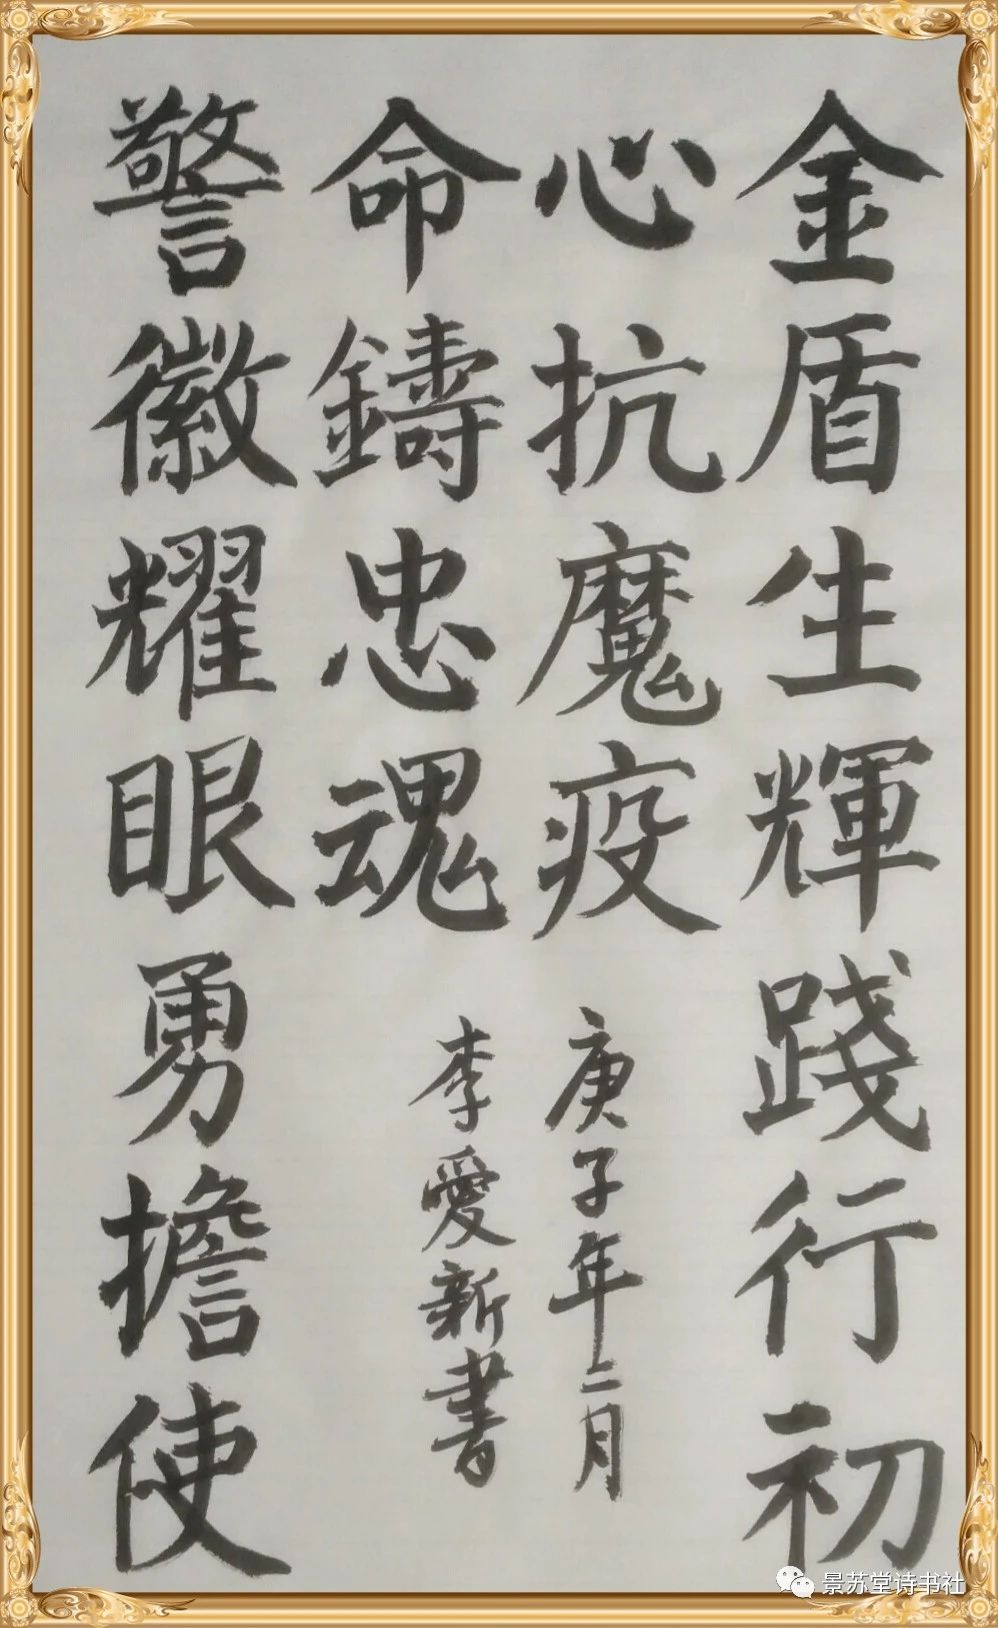 金盾生輝踐行初
心抗魔疫
警徽耀眼勇擔使
命鑄忠魂
庚子年二月
李愛新書
景苏堂诗书社